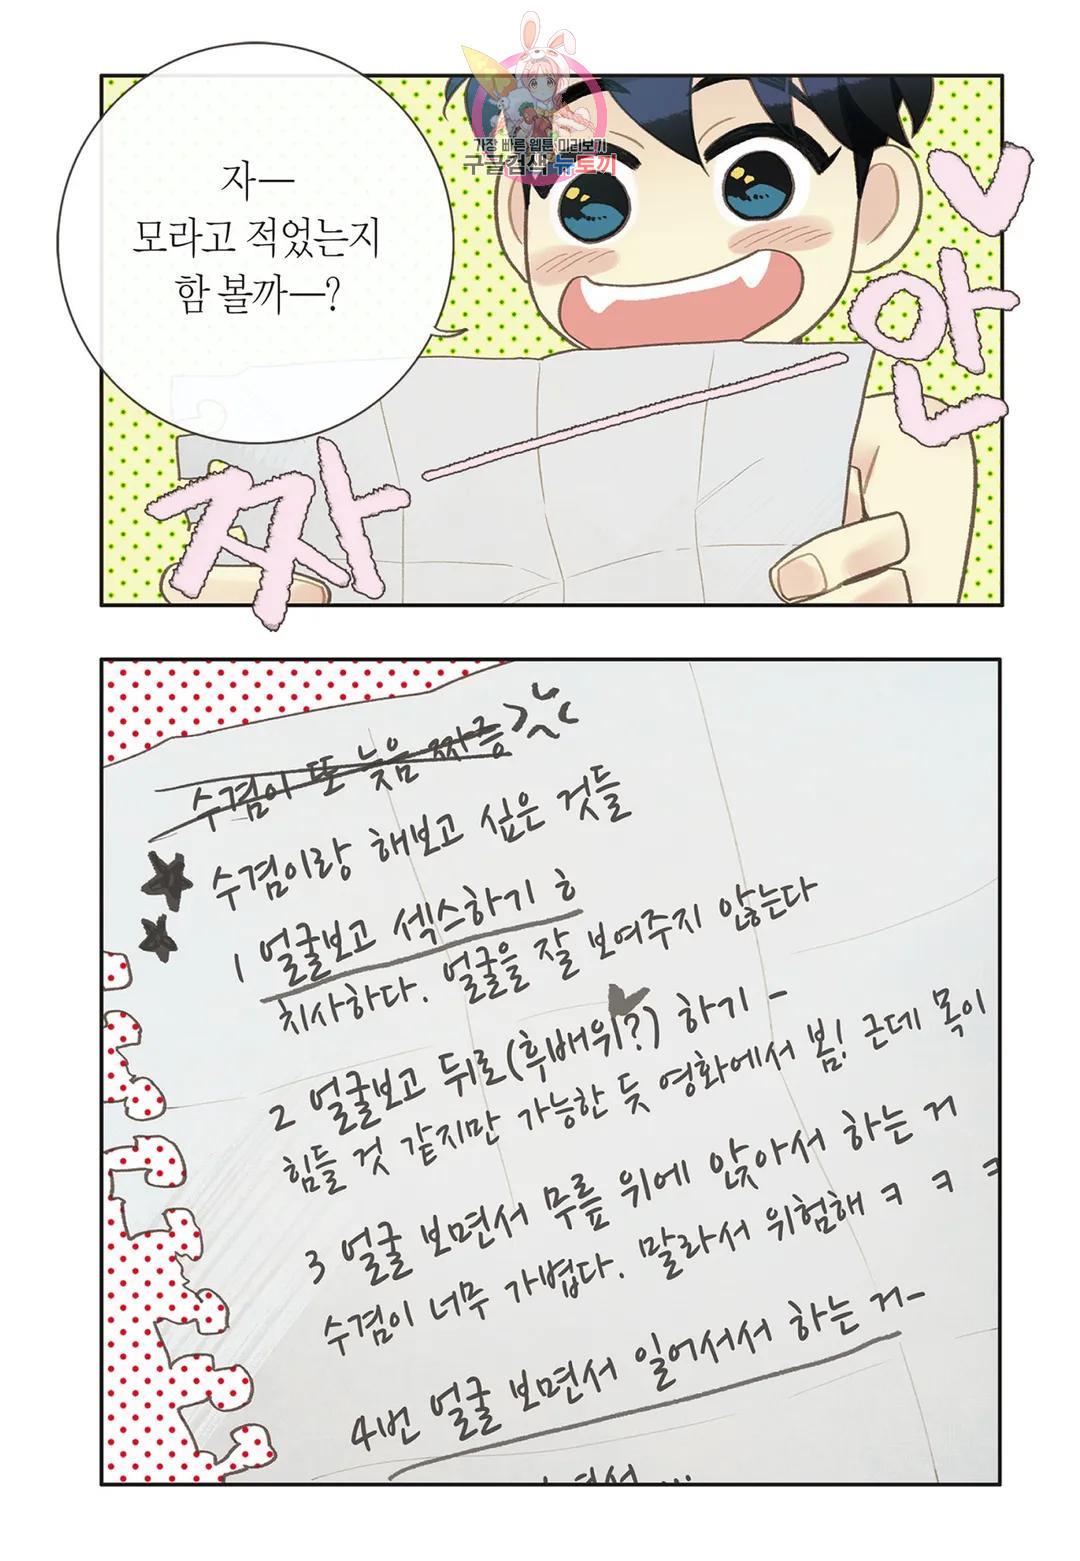 가장 빠른 웹툰 미리보기
구글검색 뉴토끼
자—
모라고 적었는지
함 볼까—?
짜
안
수겸이 또 늦음 짜증
수겸이랑 해보고 싶은 것들
1 얼굴보고 섹스하기 ㅎ
치사하다. 얼굴을 잘 보여주지 않는다
2 얼굴보고 뒤로(후배위?) 하기 -
힘들 것 같지만 가능한 듯 영화에서 봄! 근데 목이
3 얼굴 보면서 무릎 위에 앉아서 하는 거
수겸이 너무 가볍다. 말라서 위험해 ㅋ ㅋ ㅋ
4번 얼굴 보면서 일어서서 하는 거-